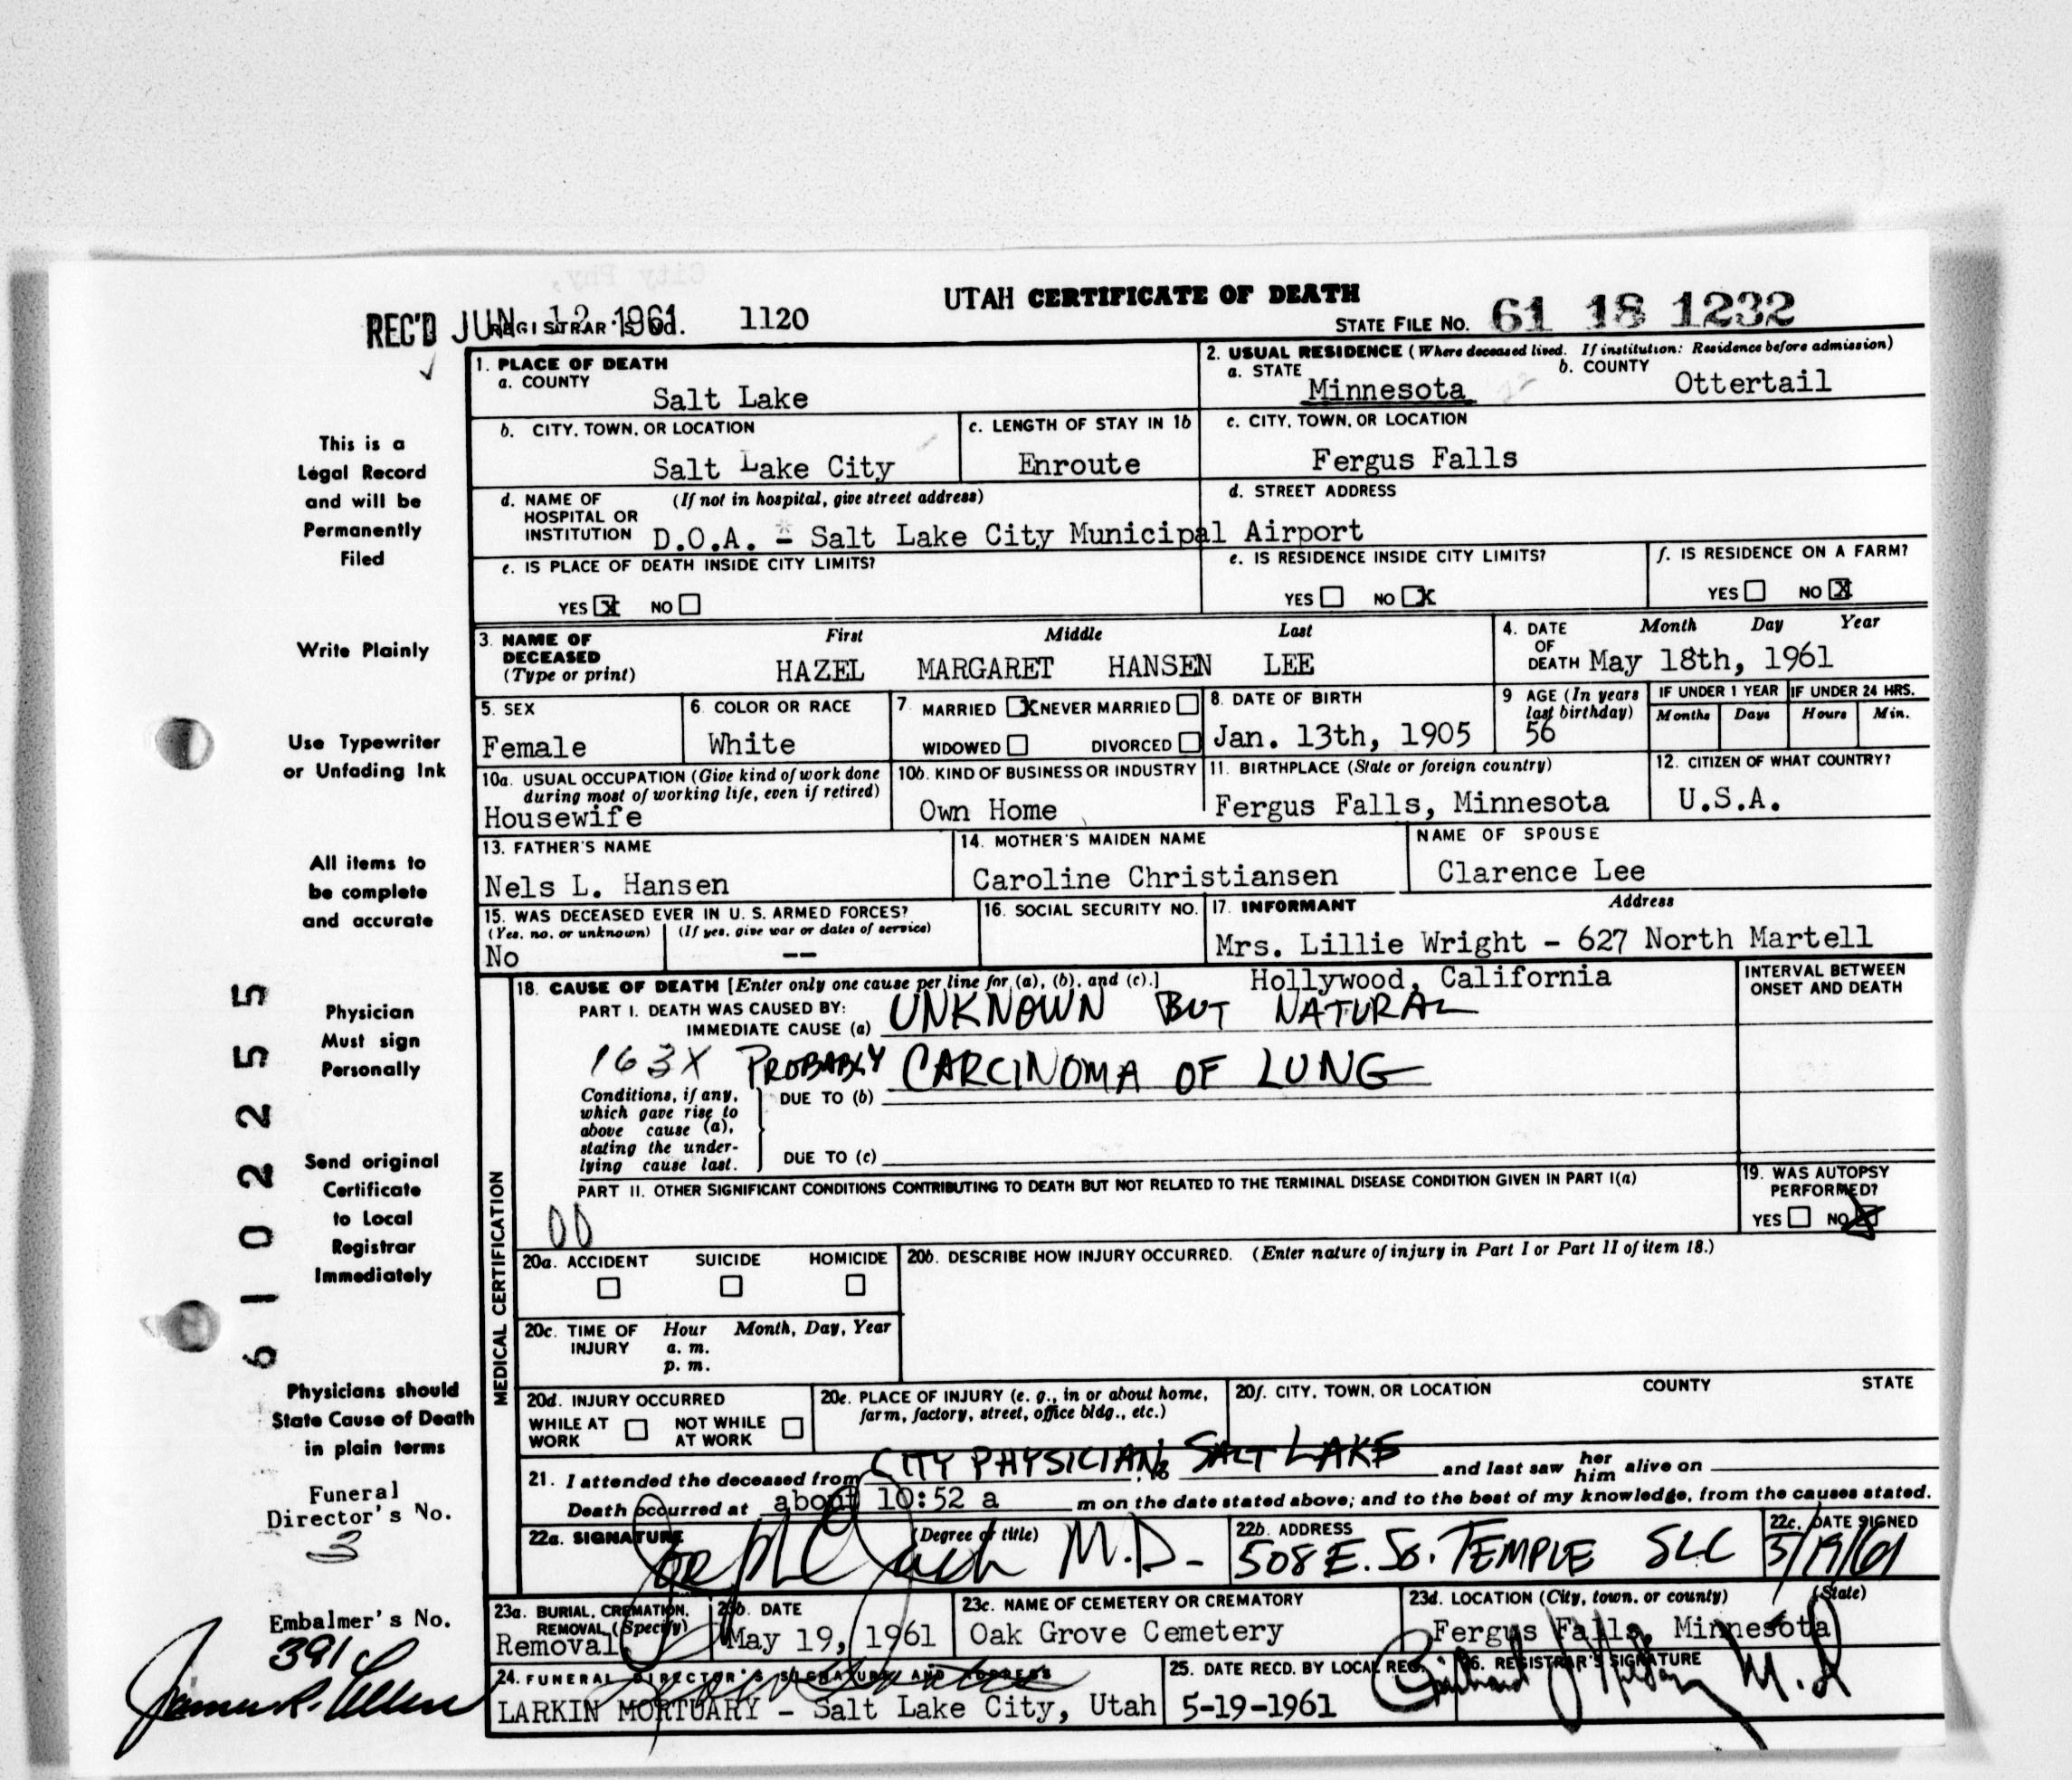 UTAH CERTIFICATE OF DEATH
REC'D JUN 12 1961 REGISTRAR'S No. 1120
STATE FILE No. 61 18 1232
1. PLACE OF DEATH
a. COUNTY
Salt Lake
2. USUAL RESIDENCE (Where deceased lived. If institution: Residence before admission)
a. STATE
Minnesota
b. COUNTY
Ottertail
b. CITY, TOWN, OR LOCATION
Salt Lake City
c. LENGTH OF STAY IN 1b
Enroute
c. CITY, TOWN, OR LOCATION
Fergus Falls
d. NAME OF HOSPITAL OR INSTITUTION
(If not in hospital, give street address)
D.O.A. - Salt Lake City Municipal Airport
d. STREET ADDRESS
e. IS PLACE OF DEATH INSIDE CITY LIMITS?
YES X NO
e. IS RESIDENCE INSIDE CITY LIMITS?
YES NO X
f. IS RESIDENCE ON A FARM?
YES NO X
3. NAME OF DECEASED
(Type or print)
First Middle Last
HAZEL MARGARET HANSEN LEE
4. DATE OF DEATH
Month Day Year
May 18th, 1961
5. SEX
Female
6. COLOR OR RACE
White
7. MARRIED X NEVER MARRIED
WIDOWED DIVORCED
8. DATE OF BIRTH
Jan. 13th, 1905
9 AGE (In years last birthday)
56
IF UNDER 1 YEAR
Months Days
IF UNDER 24 HRS.
Hours Min.
10a. USUAL OCCUPATION (Give kind of work done during most of working life, even if retired)
Housewife
10b. KIND OF BUSINESS OR INDUSTRY
Own Home
11. BIRTHPLACE (State or foreign country)
Fergus Falls, Minnesota
12. CITIZEN OF WHAT COUNTRY?
U.S.A.
13. FATHER'S NAME
Nels L. Hansen
14. MOTHER'S MAIDEN NAME
Caroline Christiansen
NAME OF SPOUSE
Clarence Lee
15. WAS DECEASED EVER IN U. S. ARMED FORCES?
(Yes, no, or unknown) (If yes, give war or dates of service)
No --
16. SOCIAL SECURITY NO.
17. INFORMANT Address
Mrs. Lillie Wright - 627 North Martell
Hollywood, California
18. CAUSE OF DEATH [Enter only one cause per line for (a), (b), and (c).]
INTERVAL BETWEEN ONSET AND DEATH
PART I. DEATH WAS CAUSED BY:
IMMEDIATE CAUSE (a) UNKNOWN BUT NATURAL
163X PROBABLY CARCINOMA OF LUNG
Conditions, if any, which gave rise to above cause (a), stating the underlying cause last.
DUE TO (b)
DUE TO (c)
PART II. OTHER SIGNIFICANT CONDITIONS CONTRIBUTING TO DEATH BUT NOT RELATED TO THE TERMINAL DISEASE CONDITION GIVEN IN PART I(a)
00
19. WAS AUTOPSY PERFORMED?
YES NO X
20a. ACCIDENT SUICIDE HOMICIDE
20b. DESCRIBE HOW INJURY OCCURRED. (Enter nature of injury in Part I or Part II of item 18.)
20c. TIME OF INJURY
Hour Month, Day, Year
a. m.
p. m.
20d. INJURY OCCURRED
WHILE AT WORK NOT WHILE AT WORK
20e. PLACE OF INJURY (e. g., in or about home, farm, factory, street, office bldg., etc.)
20f. CITY, TOWN, OR LOCATION COUNTY STATE
21. I attended the deceased from CITY PHYSICIAN, to SALT LAKE and last saw her him alive on
Death occurred at about 10:52 a m on the date stated above; and to the best of my knowledge, from the causes stated.
22a. SIGNATURE (Degree or title)
M.D.
22b. ADDRESS
508 E. So. TEMPLE SLC
22c. DATE SIGNED
5/19/61
23a. BURIAL, CREMATION, REMOVAL (Specify)
Removal
23b. DATE
May 19, 1961
23c. NAME OF CEMETERY OR CREMATORY
Oak Grove Cemetery
23d. LOCATION (City, town, or county) (State)
Fergus Falls, Minnesota
24. FUNERAL DIRECTOR'S SIGNATURE AND ADDRESS
LARKIN MORTUARY - Salt Lake City, Utah
25. DATE RECD. BY LOCAL REG.
5-19-1961
26. REGISTRAR'S SIGNATURE
M.D.
MEDICAL CERTIFICATION
This is a
Legal Record
and will be
Permanently
Filed
Write Plainly
Use Typewriter
or Unfading Ink
All items to
be complete
and accurate
Physician
Must sign
Personally
Send original
Certificate
to Local
Registrar
Immediately
Physicians should
State Cause of Death
in plain terms
Funeral
Director's No.
3
Embalmer's No.
391
61022555